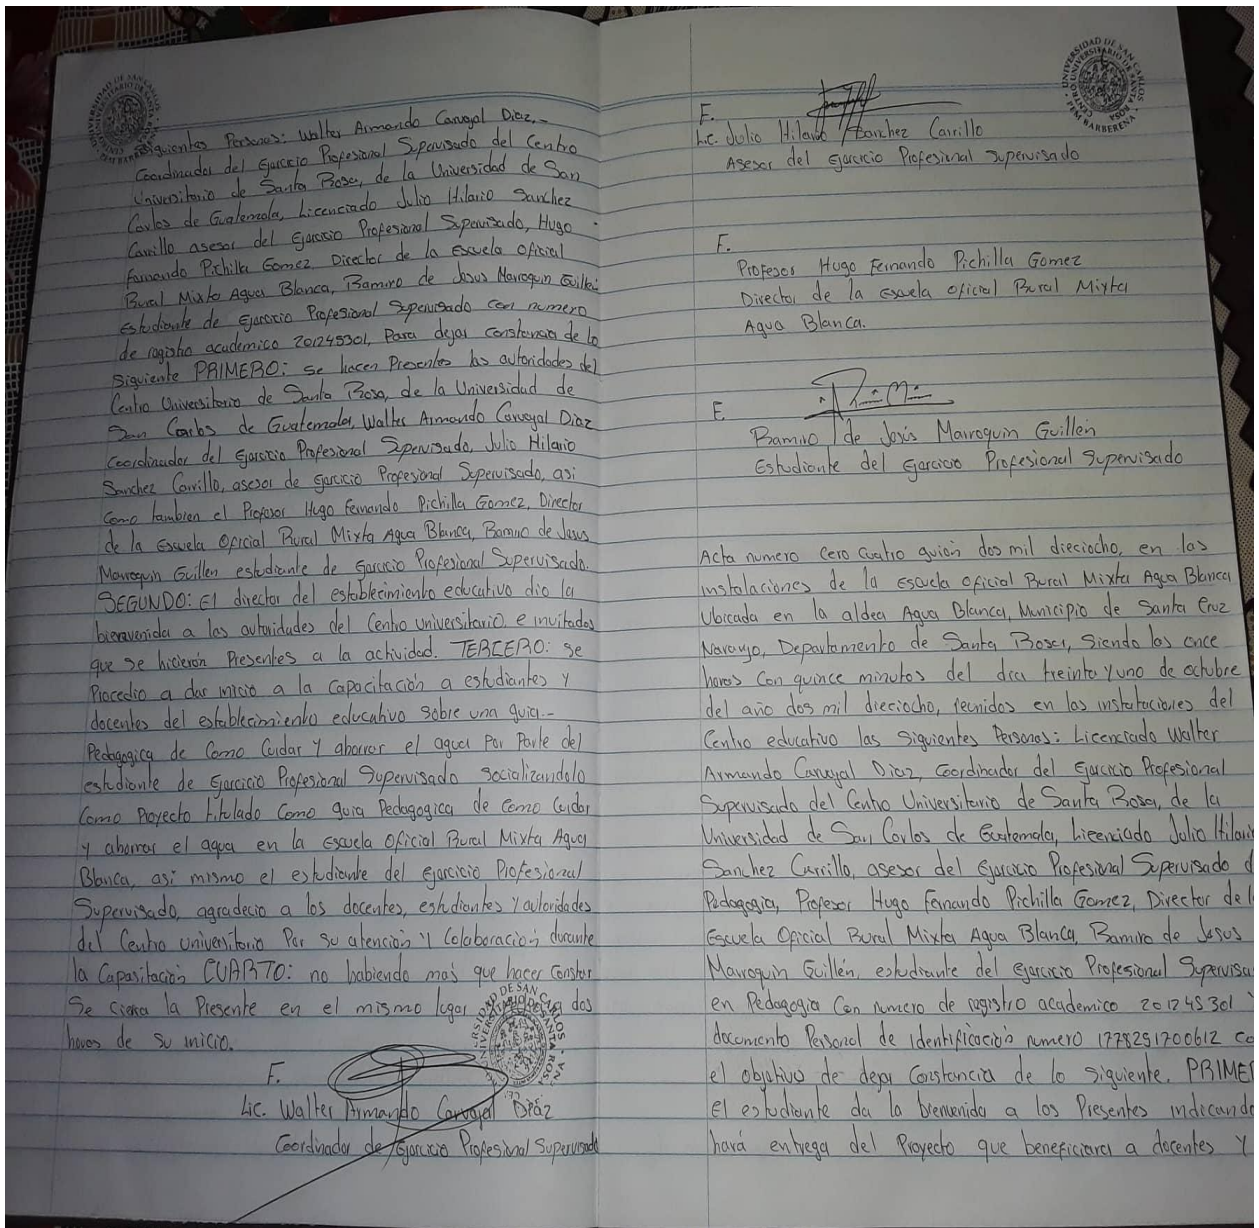 siguientes Personas: Walter Armando Carvajal Diaz,-
Coordinador del Ejercicio Profesional Supervisado del Centro
Universitario de Santa Rosa, de la Universidad de San
Carlos de Guatemala, Licenciado Julio Hilario Sanchez
Carrillo asesor del Ejercicio Profesional Supervisado, Hugo
Fernando Pichilla Gomez Director de la Escuela Oficial
Rural Mixta Agua Blanca, Ramiro de Jesus Marroquin Guillen
estudiante de Ejercicio Profesional Supervisado con numero
de registro academico 201245301, Para dejar constancia de lo
siguiente PRIMERO: se hacen Presentes las autoridades del
Centro Universitario de Santa Rosa, de la Universidad de
San Carlos de Guatemala, Walter Armando Carvajal Diaz
Coordinador del Ejercicio Profesional Supervisado, Julio Hilario
Sanchez Carrillo, asesor de Ejercicio Profesional Supervisado, asi
como tambien el Profesor Hugo Fernando Pichilla Gomez, Director
de la Escuela Oficial Rural Mixta Agua Blanca, Ramiro de Jesus
Marroquin Guillen estudiante de Ejercicio Profesional Supervisado.
SEGUNDO: El director del establecimiento educativo dio la
bienvenida a las autoridades del Centro universitario e invitados
que se hicieron Presentes a la actividad. TERCERO: se
Procedio a dar inicio a la capacitación a estudiantes y
docentes del establecimiento educativo sobre una guia.-
Pedagogica de Como Cuidar y ahorrar el agua Por Parte del
estudiante de Ejercicio Profesional Supervisado socializandolo
Como Proyecto titulado Como guia Pedagogica de como Cuidar
y ahorrar el agua en la Escuela Oficial Rural Mixta Agua
Blanca, asi mismo el estudiante del ejercicio Profesional
Supervisado, agradecio a los docentes, estudiantes y autoridades
del Centro universitorio Por su atención y Colaboración durante
la Capasitación CUARTO: no habiendo más que hacer Constar
Se cierra la Presente en el mismo lugar dos
horas de su inicio.
F.
Lic. Walter Armando Carvajal Díaz
Coordinador de Ejercicio Profesional Supervisado
F.
Lic. Julio Hilario Sanchez Carrillo
Asesor del Ejercicio Profesional Supervisado
F.
Profesor Hugo Fernando Pichilla Gomez
Director de la Escuela Oficial Rural Mixta
Agua Blanca.
F.
Ramiro de Jesús Marroquin Guillén
Estudiante del Ejercicio Profesional Supervisado
Acta numero cero cuatro guión dos mil dieciocho, en las
instalaciones de la Escuela Oficial Rural Mixta Agua Blanca
Ubicada en la aldea Agua Blanca, Municipio de Santa Cruz
Naranjo, Departamento de Santa Rosa, Siendo las once
horas Con quince minutos del dia treinta y uno de octubre
del año dos mil dieciocho, reunidos en las instalaciones del
Centro educativo las Siguientes Personas: Licenciado Walter
Armando Carvajal Diaz, Coordinador del Ejercicio Profesional
Supervisado del Centro Universitario de Santa Rosa, de la
Universidad de San Carlos de Guatemala, Licenciado Julio Hilario
Sanchez Carrillo, asesor del Ejercicio Profesional Supervisado d
Pedagogia, Profesor Hugo Fernando Pichilla Gomez, Director de l
Escuela Oficial Rural Mixta Agua Blanca, Ramiro de Jesus
Marroquin Guillén, estudiante del Ejercicio Profesional Supervisa
en Pedagogia Con numero de registro academico 201245301 y
documento Personal de Identificación numero 1778251700612 co
el objetivo de dejar Constancia de lo siguiente. PRIMER
El estudiante da la bienvenida a los Presentes indicando
hará entrega del Proyecto que beneficiara a docentes y